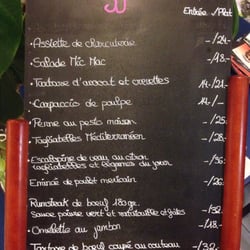 Entrée / Plat
• Assiette de charcuterie -/24.-
• Salade Mic Mac -/18.-
• Tartare d'avocat et crevettes 14.-/21.-
• Carpaccio de poulpe 14.-/
• Penne au pesto maison -/25.-
• Tagliatelles Méditerranéen -/28.-
• Escalopine de veau au citron
tagliatelles et légumes du jour -/36.-
• Emincé de poulet mexicain -/26.-
Rumsteak de boeuf 180gr.
Sauce poivre vert et ratatouille et frites -/32.-
• Omelette au jambon -/18.-
Tartare de boeuf coupé au couteau -/32.-